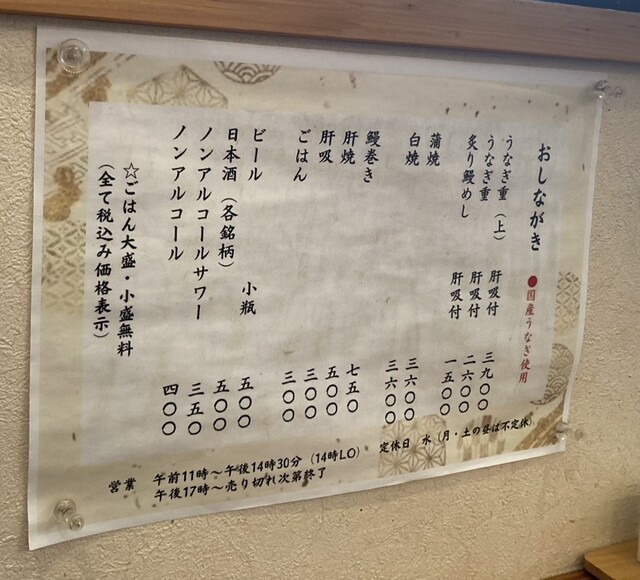 おしながき
●国産うなぎ使用
うなぎ重（上） 肝吸付 三九〇〇
うなぎ重 肝吸付 二六〇〇
炙り鰻めし 肝吸付 一五〇〇
蒲焼 三六〇〇
白焼 三六〇〇
鰻巻き 七五〇
肝焼 五〇〇
肝吸 三〇〇
ごはん 三〇〇
ビール 小瓶 五〇〇
日本酒（各銘柄） 五〇〇
ノンアルコールサワー 三五〇
ノンアルコール 四〇〇
☆ごはん大盛・小盛無料
（全て税込み価格表示）
営業 午前11時～午後14時30分（14時LO） 定休日 水（月・土の昼は不定休）
午後17時～売り切れ次第終了